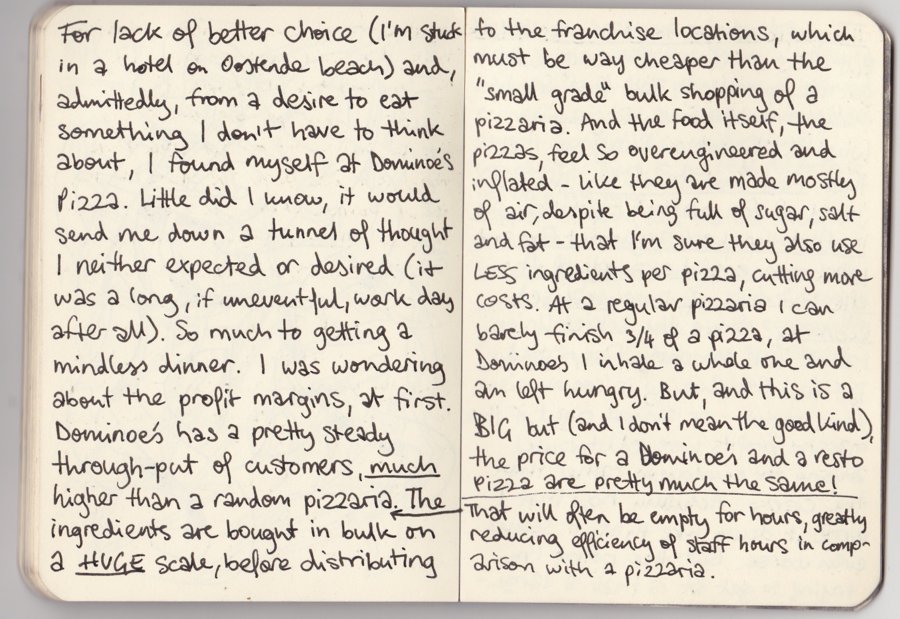 For lack of better choice (I'm stuck
in a hotel on Oostende beach) and,
admittedly, from a desire to eat
something I don't have to think
about, I found myself at Dominoe's
Pizza. Little did I know, it would
send me down a tunnel of thought
I neither expected or desired (it
was a long, if uneventful, work day
after all). So much to getting a
mindless dinner. I was wondering
about the profit margins, at first.
Dominoe's has a pretty steady
through-put of customers, much
higher than a random pizzaria. The
ingredients are bought in bulk on
a HUGE scale, before distributing
to the franchise locations, which
must be way cheaper than the
"small grade" bulk shopping of a
pizzaria. And the food itself, the
pizzas, feel so overengineered and
inflated - like they are made mostly
of air, despite being full of sugar, salt
and fat - that I'm sure they also use
LESS ingredients per pizza, cutting more
costs. At a regular pizzaria I can
barely finish 3/4 of a pizza, at
Dominoes I inhale a whole one and
am left hungry. But, and this is a
BIG but (and I don't mean the good kind),
the price for a Dominoe's and a resto
pizza are pretty much the same!
That will often be empty for hours, greatly
reducing efficiency of staff hours in comp-
arison with a pizzaria.